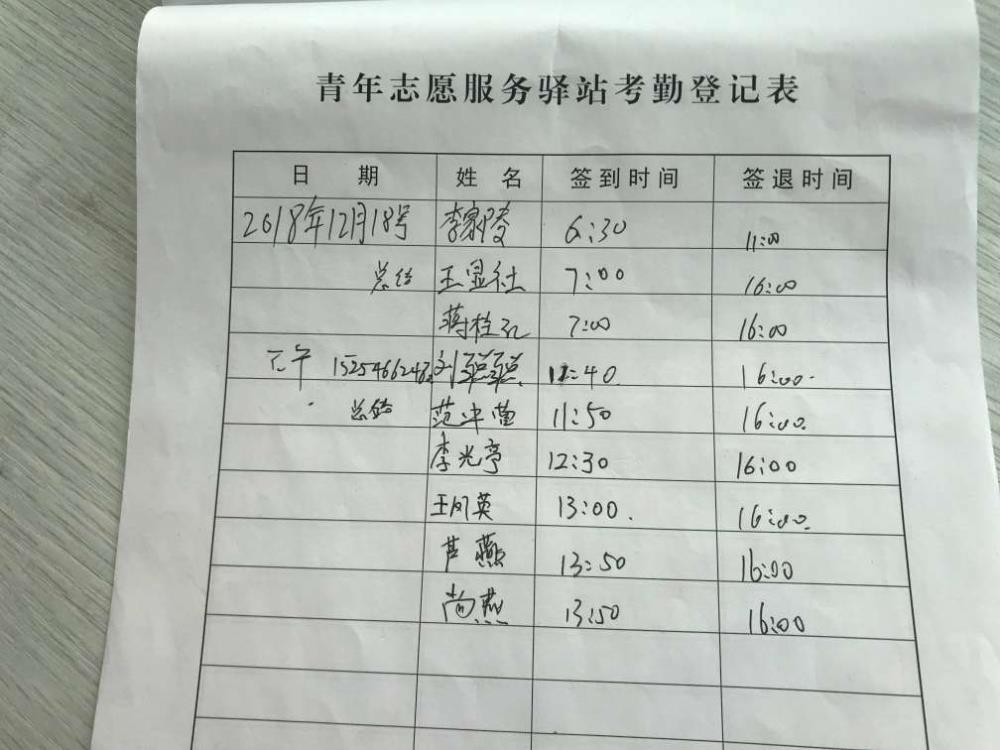 青年志愿服务驿站考勤登记表
日 期 姓 名 签到时间 签退时间
2018年12月18号 李家陵 6:30 11:00
总结 王显社 7:00 16:00
蒋桂 7:00 16:00
下午 刘 12:40 16:00
总结 范 11:50 16:00
李光亭 12:30 16:00
王凤英 13:00 16:00
芦燕 13:50 16:00
尚燕 13:50 16:00